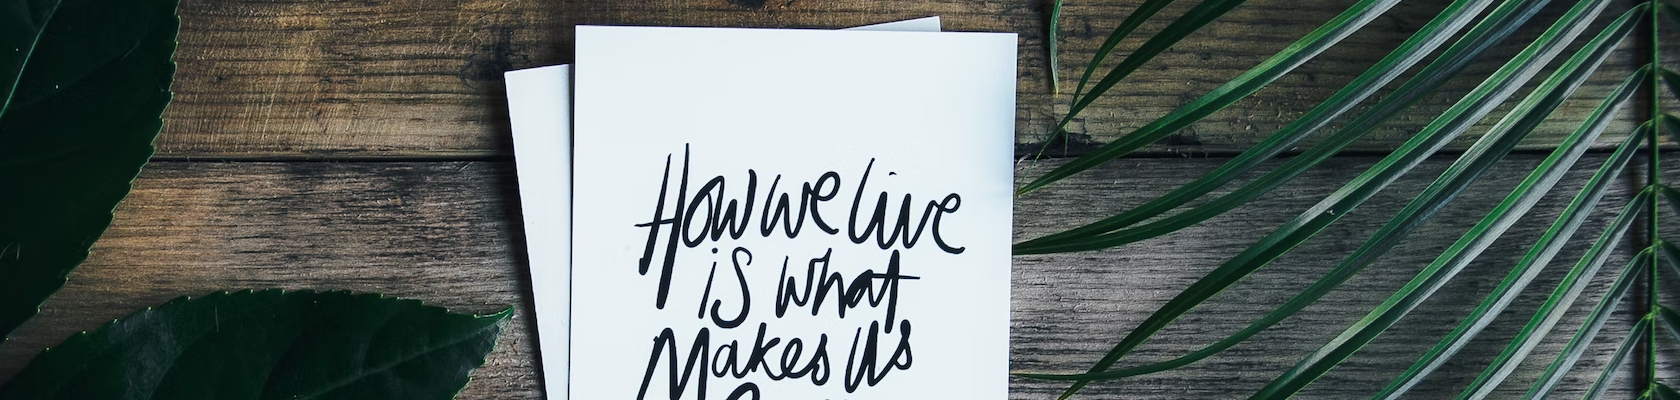 How we live
is what
Makes us